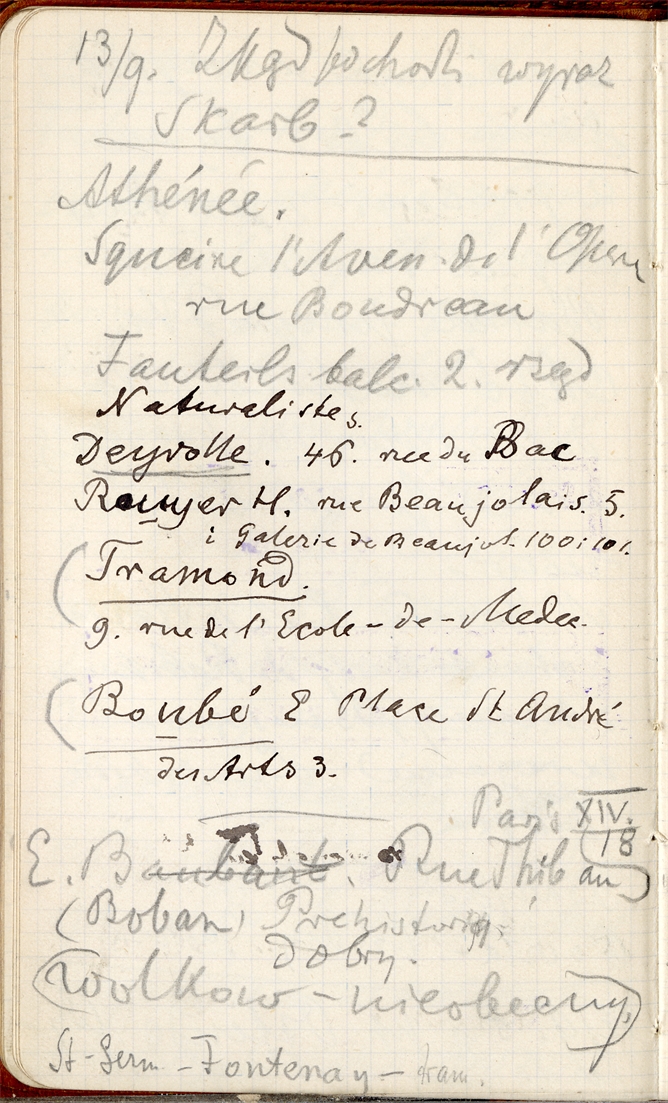 13/9. Zkąd pochodzi wyraz
Skarb?
Athénée.
Squeire l'Aven. de l'Opera
rue Boudreau
Fauteils balc. 2. rzęd
Naturalistes.
Deyrolle. 46. rue du Bac
Rouyer H. rue Beaujolais. 5.
i Galerie de Beaujol. 100 i 101.
(Tramond.
9. rue de l'Ecole-de-Medec.
(Boubé E Place St André
des Arts 3.
Paris XIV.
(18
E. Baubant. Rue Thibau)
(Boban) Prehistoriq.
dobry.
(Wolkow - nieobecny)
St-Germ - Fontenay - tram.